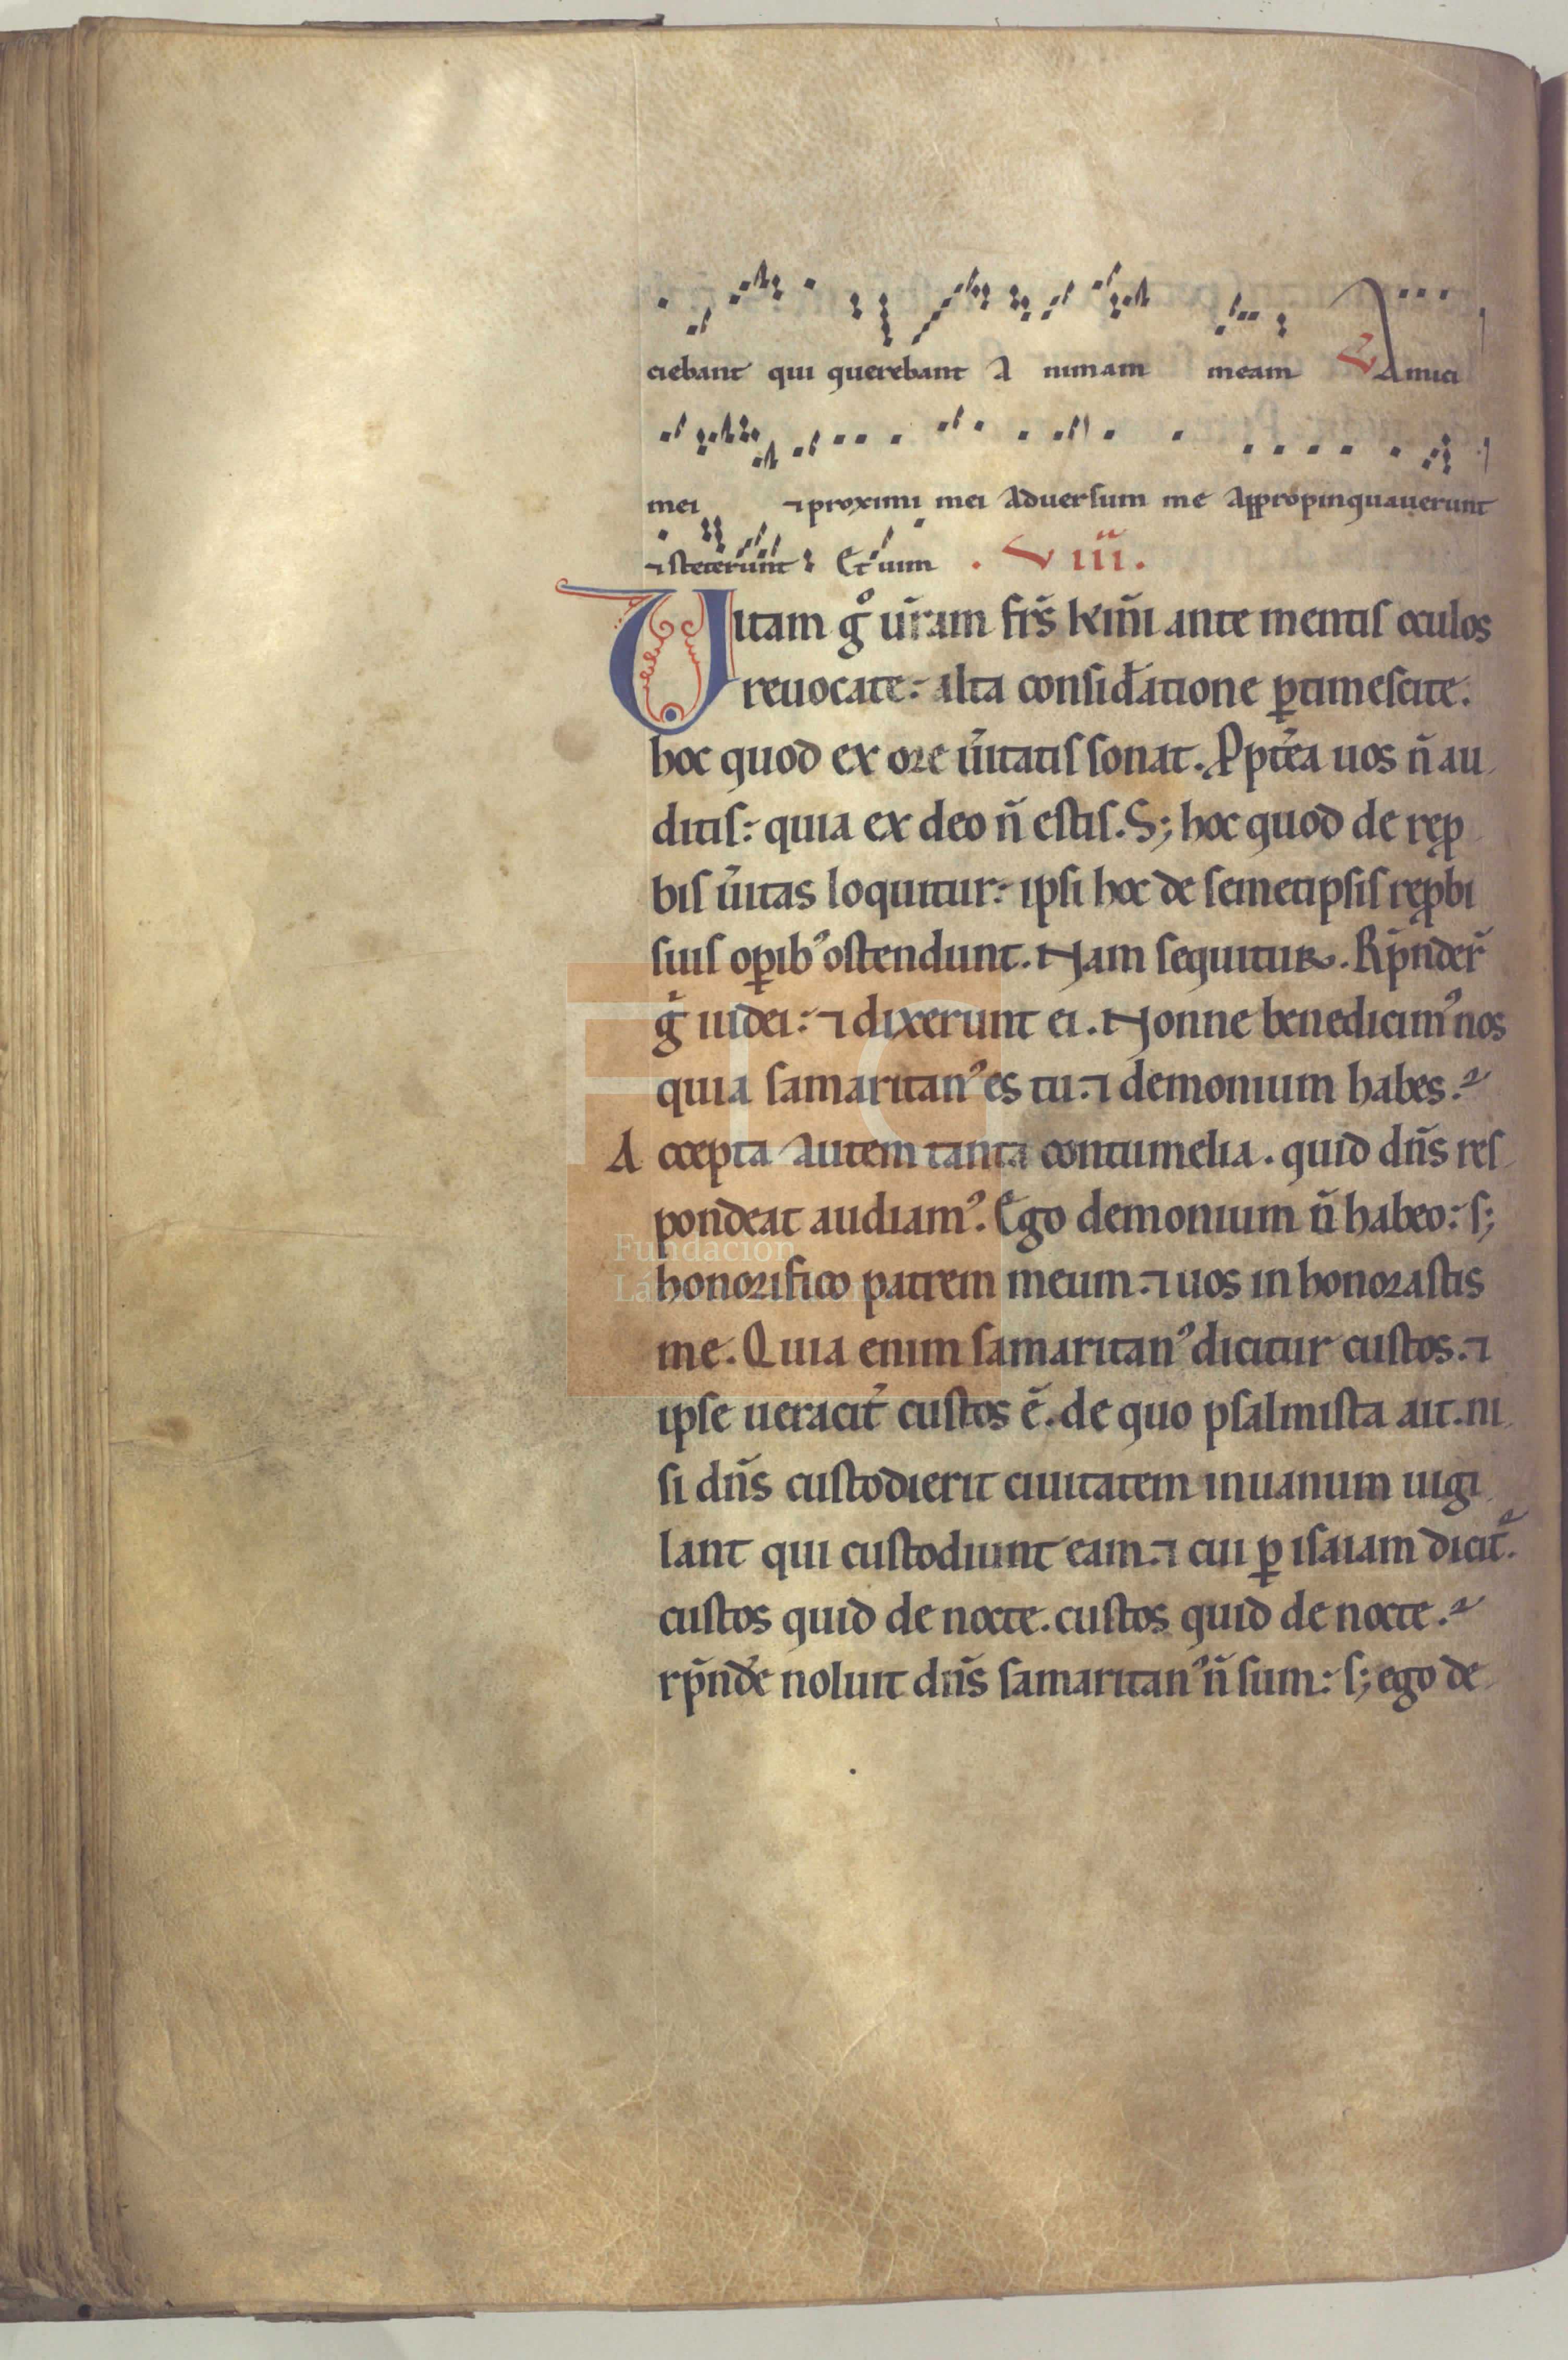 ciebant qui querebant A nimam meam V Amici
mei ⁊ proximi mei Aduersum me Appropinquauerunt
⁊ steterunt Et uim . Viii.
Uitam gͦ ur̃am fr̃s km̃i ante mentis oculos
reuocate: alta consid̃atione ꝑtimescite.
hoc quod ex ore ũitatis sonat. Ꝓpt̃ea uos ñ au
ditis: quia ex deo ñ estis. S; hoc quod de reꝓ
bis ũitas loquitur: ipsi hoc de semetipsis reꝓbi
suis oꝑibꝰ ostendunt. Nam sequitur. Rp̃nder̃
g̃ iudei: ⁊ dixerunt ei. Nonne benedicimꝰ nos
quia samaritanꝰ es tu. ⁊ demonium habes.
Accepta autem tanta contumelia. quid dñs res
pondeat audiamꝰ. Ego demonium ñ habeo: s;
honorifico patrem meum. ⁊ uos in honorastis
me. Quia enim samaritanꝰ dicitur custos. ⁊
ipse ueracit̃ custos ẽ. de quo psalmista ait. ni
si dñs custodierit ciuitatem inuanum uigi
lant qui custodiunt eam. ⁊ cui ꝑ isaiam dicit̃.
custos quid de nocte. custos quid de nocte.
rp̃nde᷒ noluit dñs samaritanꝰ ñ sum: s; ego de
Fundación